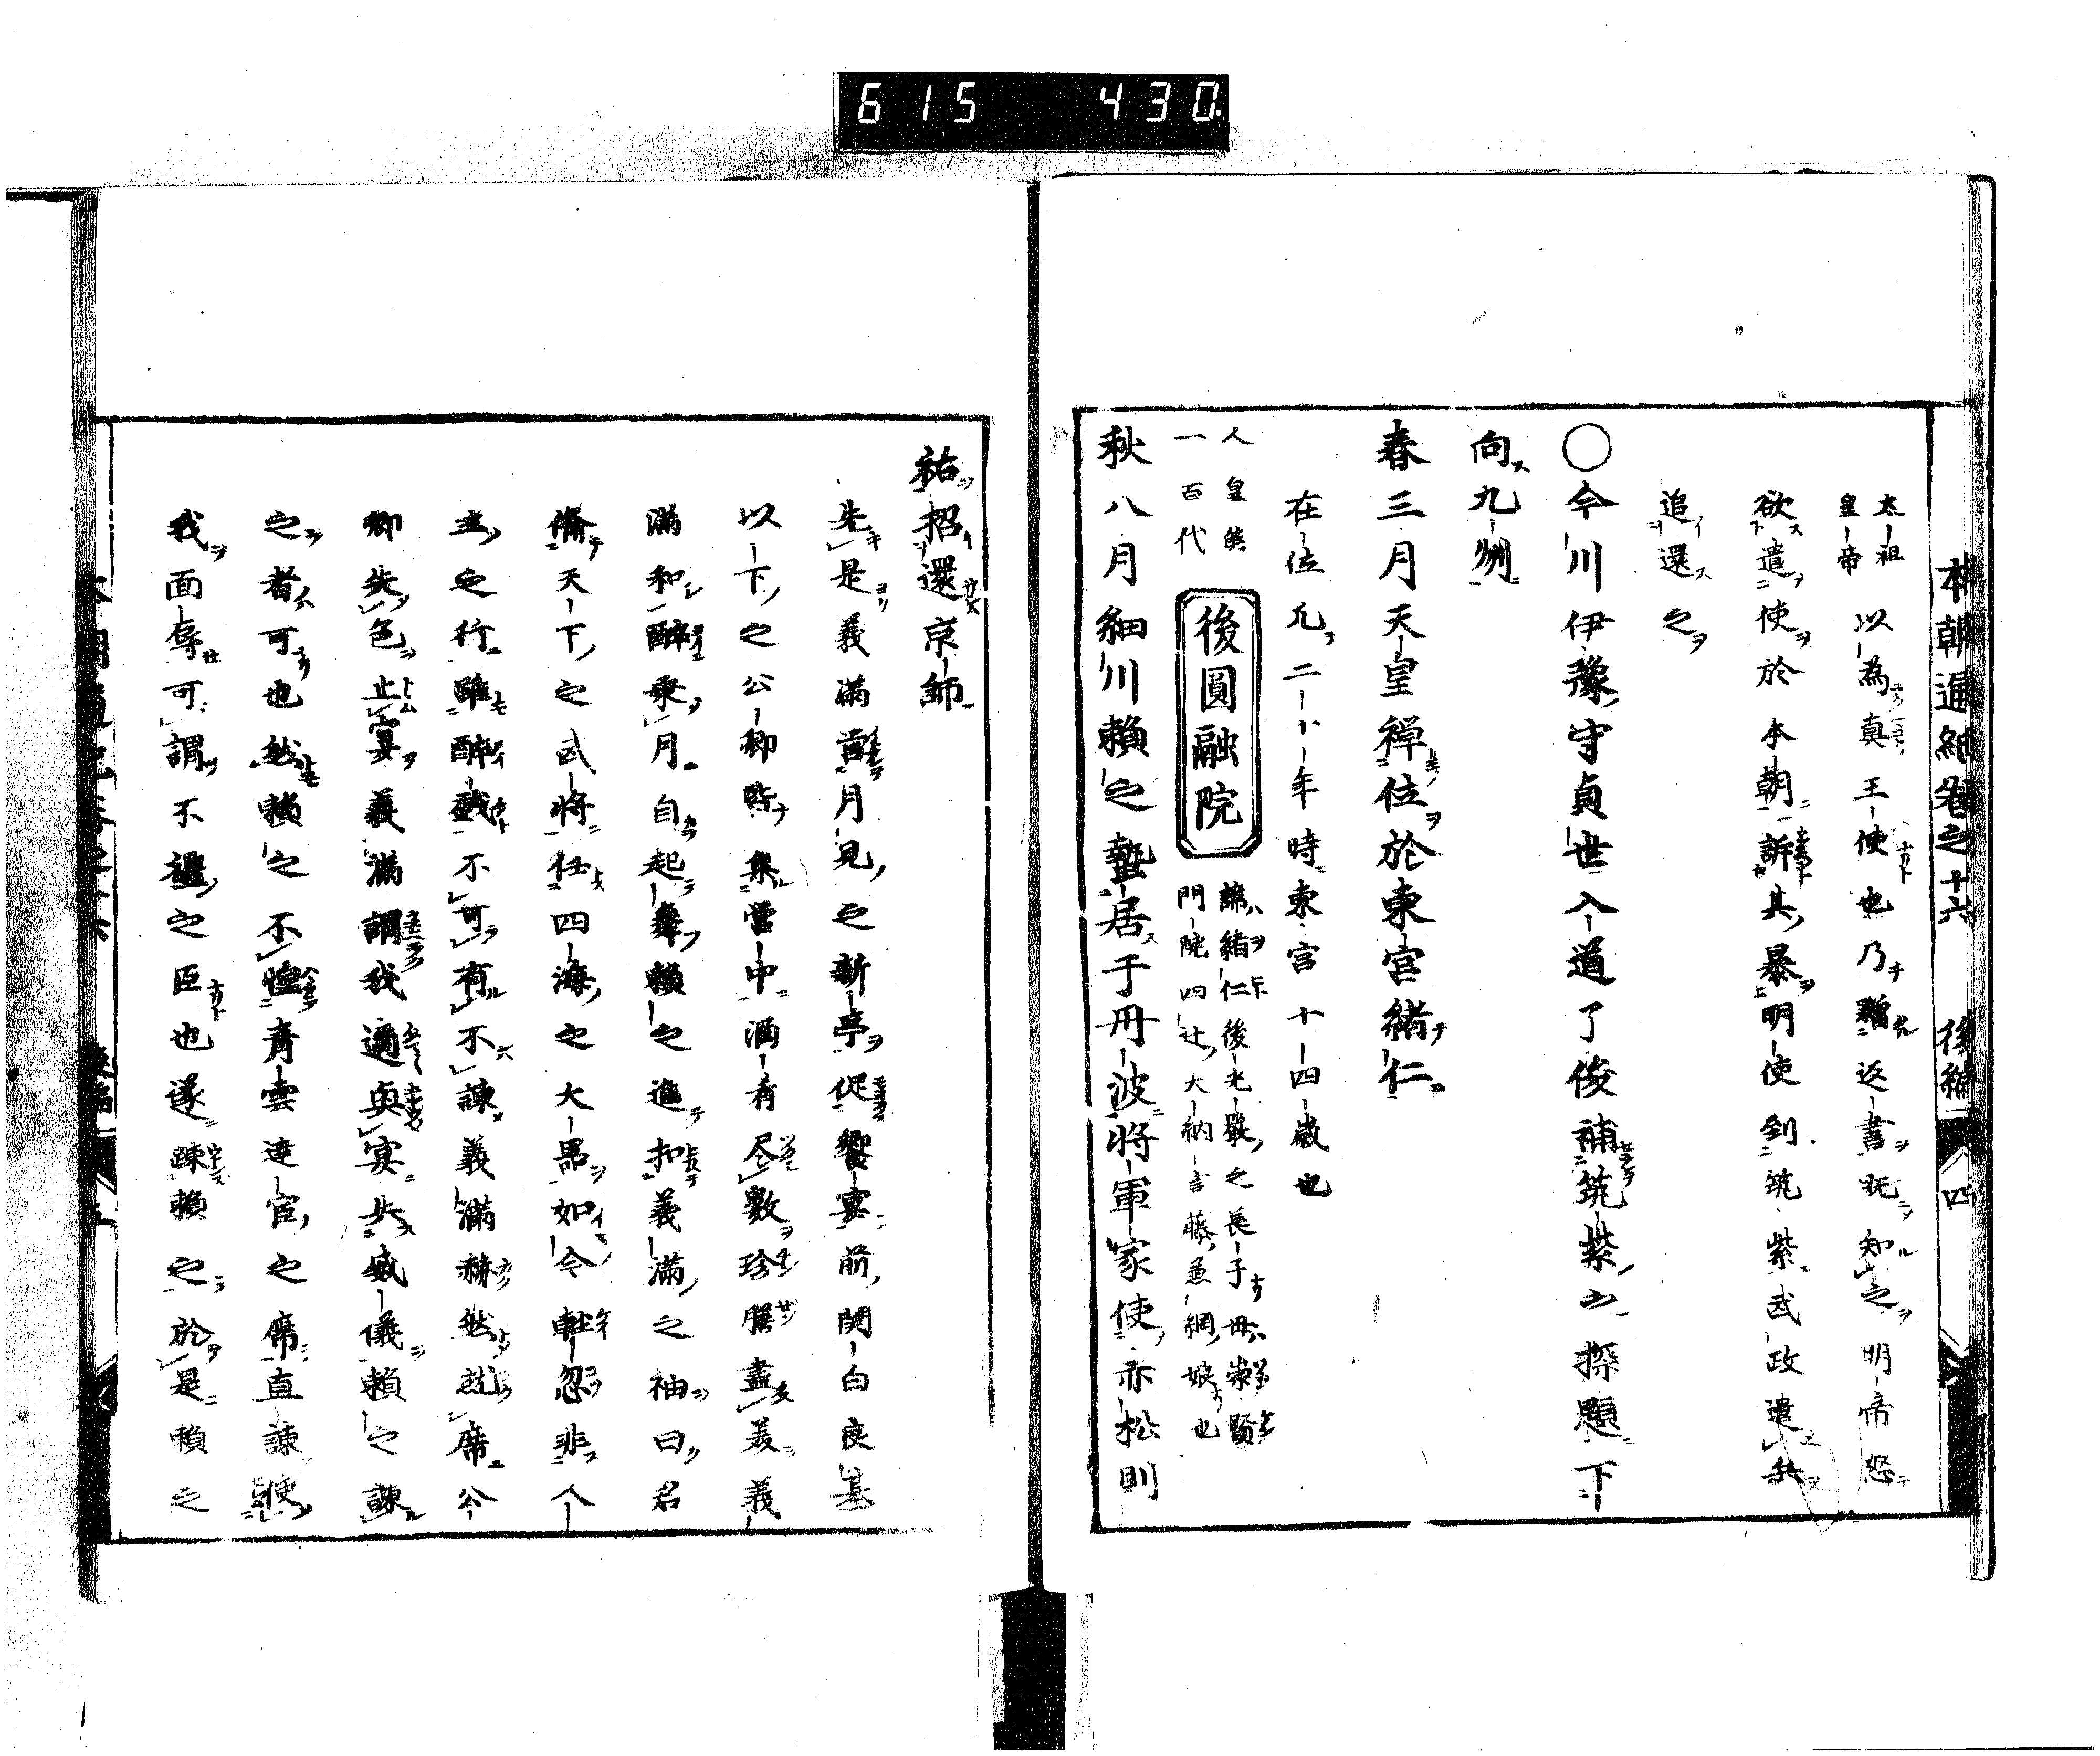 615 430
本朝通紀卷之十六 後編 四
太祖
皇帝
以為真王使也乃贈返書既知之明帝怒
欲遣使於本朝訴其暴明使到筑紫武政遣兵
追還之
○今川伊豫守貞世入道了俊補筑紫之探題下
向九州
春三月天皇禪位於東宮緒仁
在位凢二十年時東宮十四歲也
人皇
一百代
後圓融院
諱緒仁後光嚴之長子母崇賢
門院四辻大納言藤兼綱娘也
秋八月細川賴之蟄居于丹波將軍家使赤松則
祐招還京師
先是義滿 月見之新亭促饗宴前関白良基
以下之公卿皆集營中酒肴尽數珍膳盡美義
滿和醉乘月自起舞賴之進扣義滿之袖曰君
備天下之武將任四海之大器如今輕忽非人
主之行雖醉戲不可有不諫義滿赫然就席公
卿失色止宴義滿謂我適與宴失威儀賴之諫
之者可也然賴之不憚青雲達官之席直諫使
我面辱可謂不禮之臣也遂疎賴之於是賴之